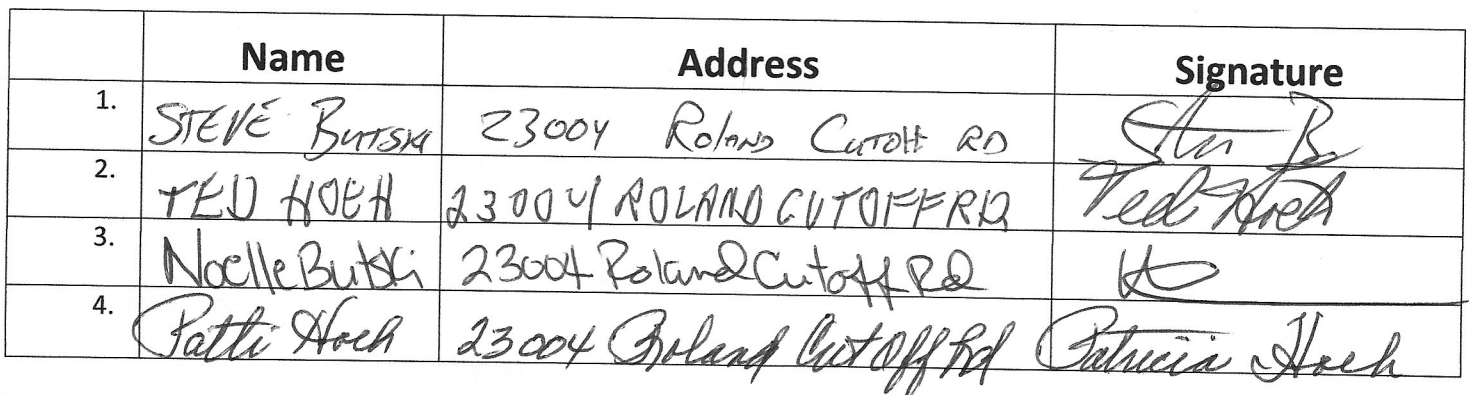 Name Address Signature
1. STEVE BUTSKI 23004 Roland Cutoff RD
2. TED HOEH 23004 ROLAND CUTOFF RD Ted Hoeh
3. Noelle Butski 23004 Roland Cutoff Rd
4. Patti Hoeh 23004 Roland Cut Off Rd Patricia Hoeh